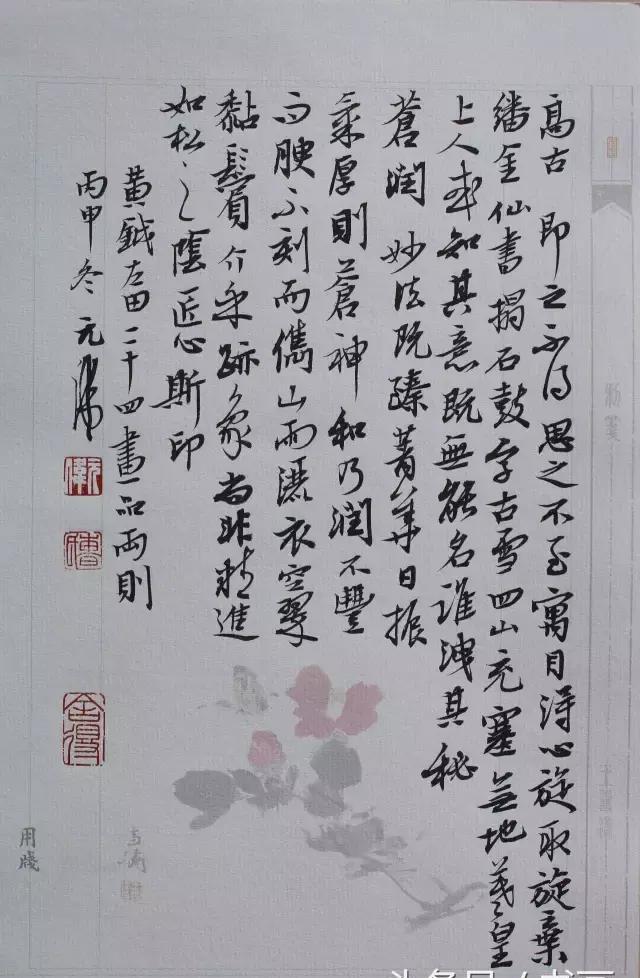 高古 即之不得思之不至寓目得心旋取旋棄
繙金仙書搨石鼓字古雪四山充塞無地羲皇
上人或知其意既無能名誰洩其秘
蒼潤 妙法既臻菁華日振
氣厚則蒼神和乃潤不豐
而腴不刻而儁山雨灑衣空翠
黏鬢介乎跡象尚非精進
如松之陰匠心斯印
黃鉞左田二十四畫品兩則
丙申冬 元
用牋